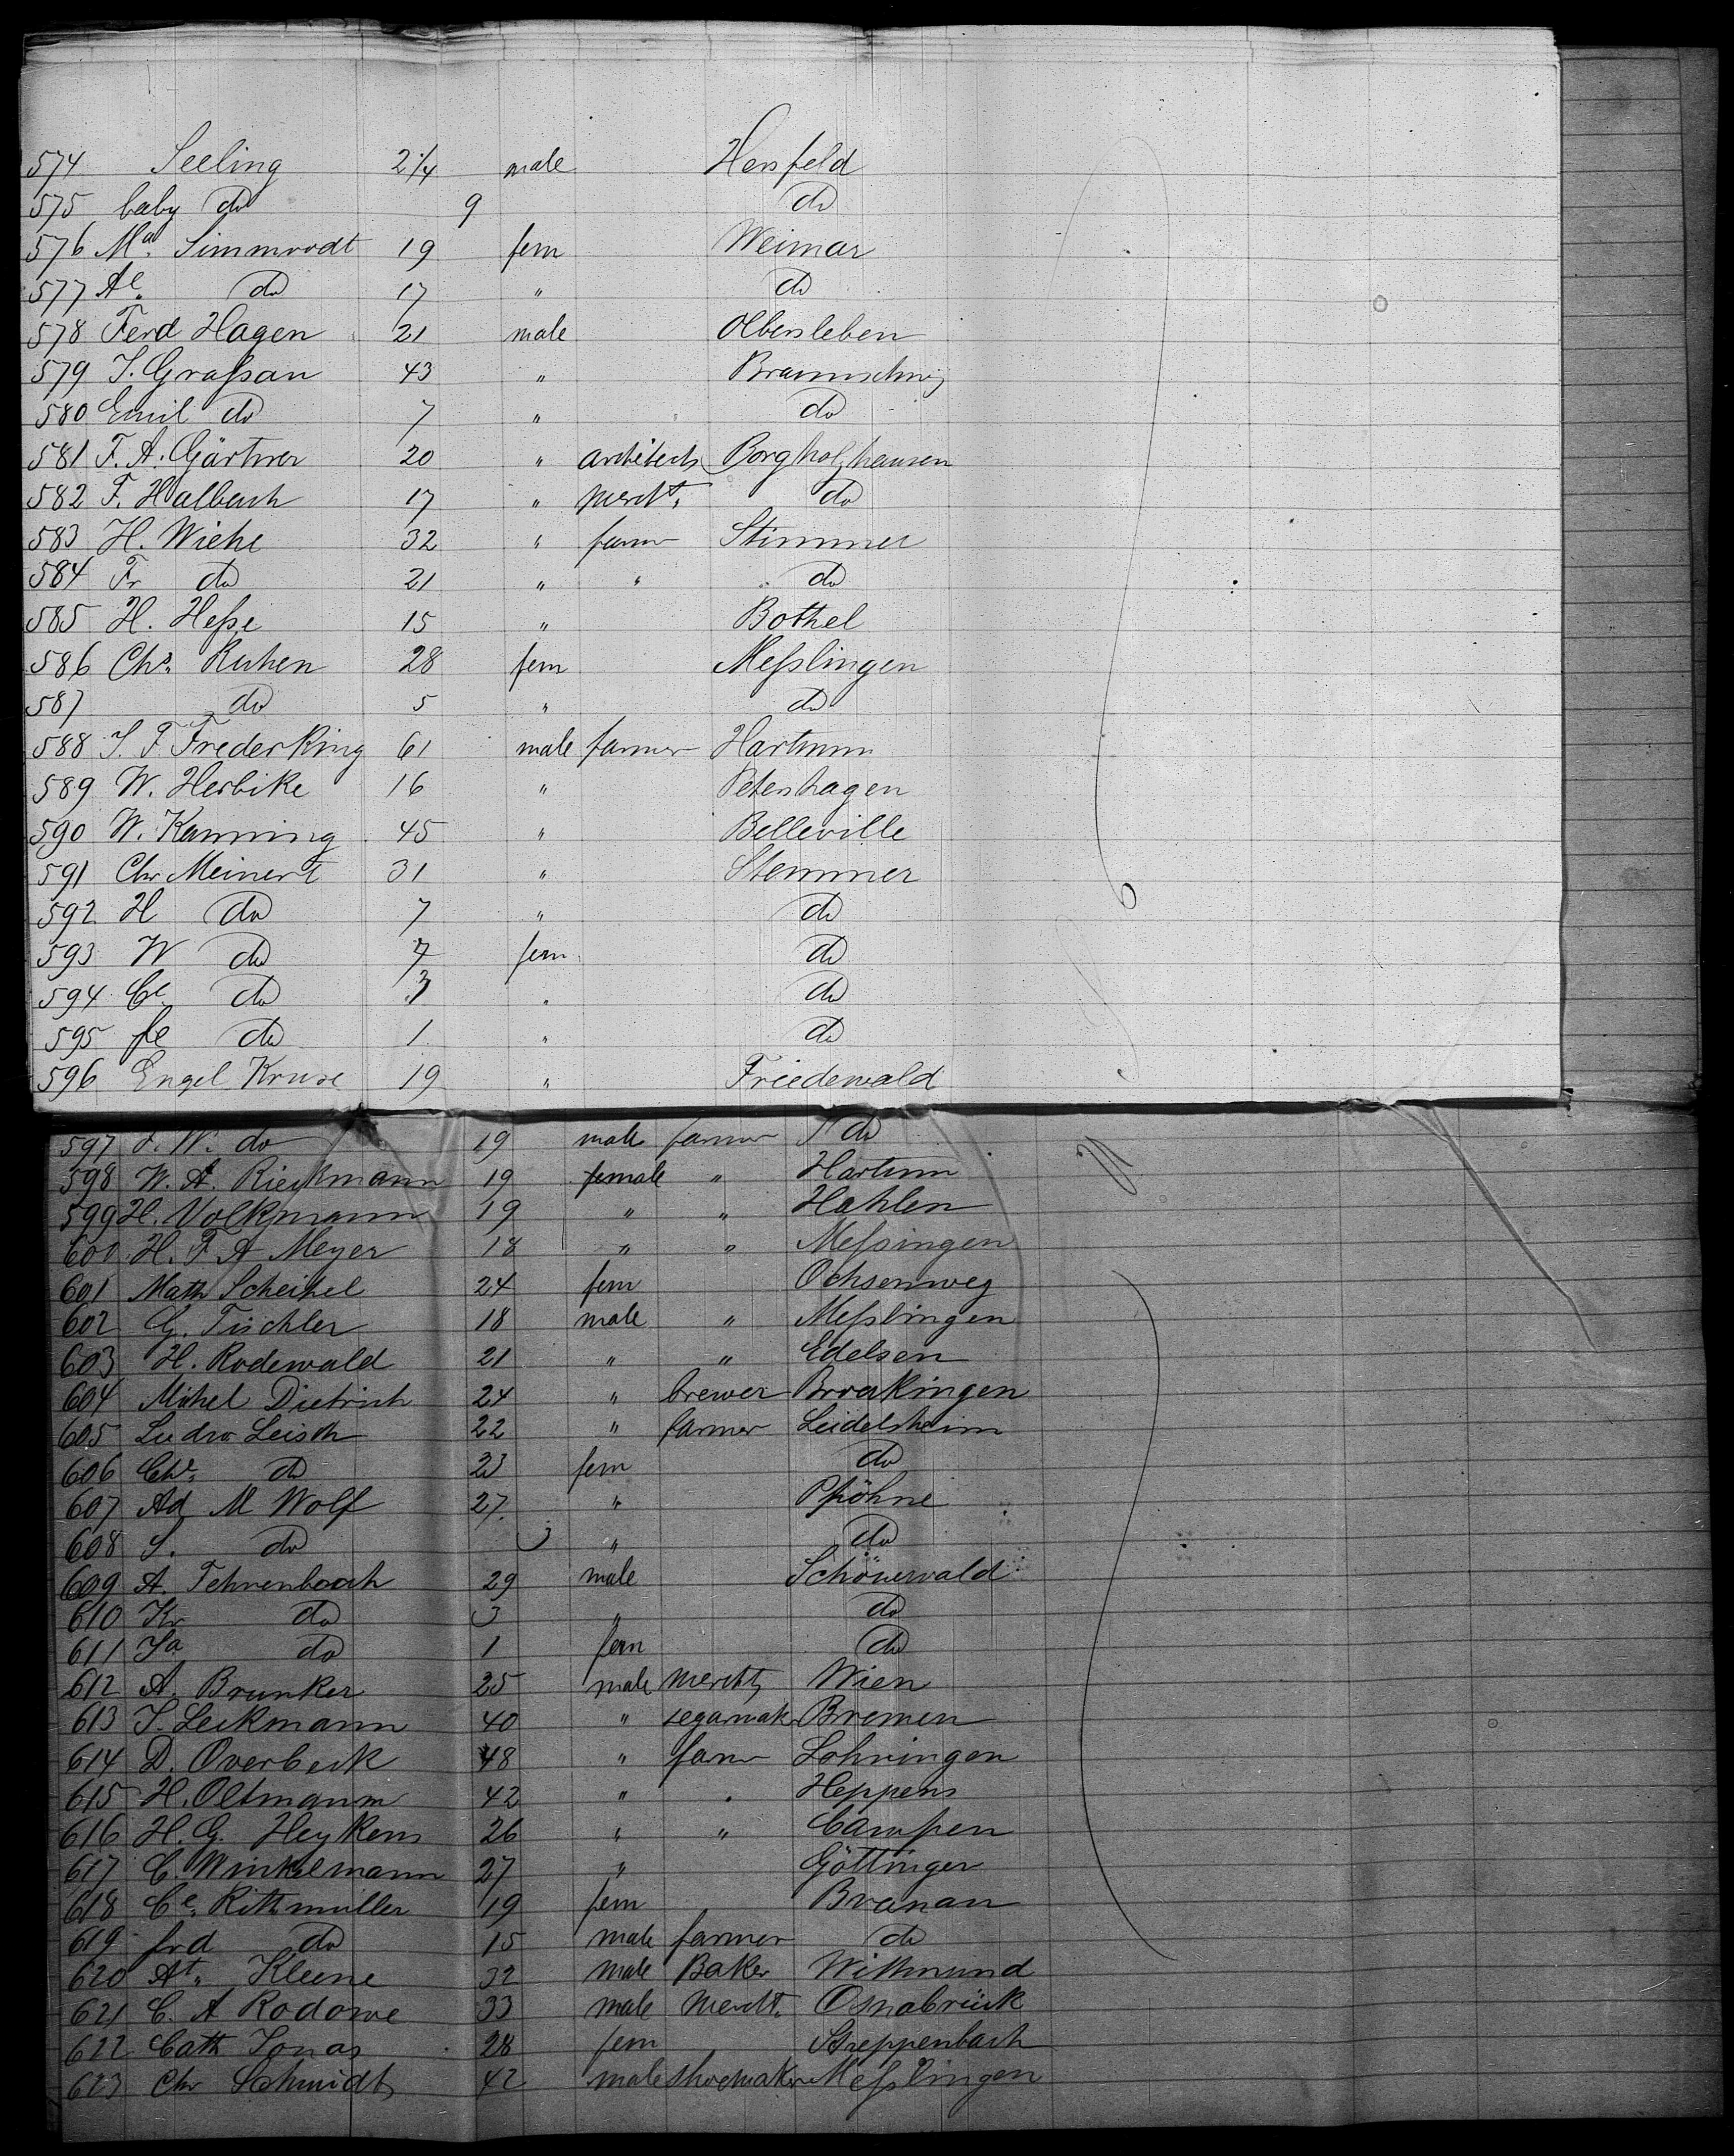 574 Seeling 2 1/4 male Hersfeld
575 baby do 9 do
576 Ma. Simmrodt 19 fem Weimar
577 Al. do 17 " do
578 Ferd Hagen 21 male Olbersleben
579 J. Graßan 43 " Braunschwg
580 Emil do 7 " do
581 F. A. Gärtner 20 " architects Borgholzhausen
582 F. Halbach 17 " mercht. do
583 H. Wiehe 32 " farmr Stimmer
584 Fr do 21 " " do
585 H. Heße 15 " Bothel
586 Chs. Ruhen 28 fem Meßlingen
587 do 5 " do
588 J. F. Frederking 61 male farmer Hartum
589 W. Herbike 16 " Petershagen
590 W. Kanning 45 " Belleville
591 Chr Meinert 31 " Stemmer
592 H do 7 " do
593 W do 7 fem. do
594 Ce do 3 " do
595 fe do 1 " do
596 Engel Kruse 19 " Friedewald
597 F. W. do 19 male farmer do
598 W. A. Rieckmann 19 female " Hartum
599 H. Volkmann 19 " " Hahlen
600 H. F A Meyer 18 " " Meßingen
601 Math Scheihel 24 fem Ochsenweg
602 G. Tischler 18 male " Meßlingen
603 H. Rodewald 21 " " Edelsen
604 Michel Dietrich 24 " brewer Brockingen
605 Ludw Leisth 22 " farmer Leidelsheim
606 Che. do 23 fem do
607 Ad M Wolf 27. " Pföhne
608 S. do 3 " do
609 A. Fehrenbach 29 male Schönewald
610 Kr do 3 " do
611 Ja do 1 fem do
612 A. Brunker 25 male mercht Wien
613 J. Leckmann 40 " segarmak Bremen
614 D. Overbeck 48 " farmr Lohningen
615 H. Oltmann 42 " " Heppens
616 H. G. Heykens 26 " " Campen
617 C. Winkelmann 27 " Göttingen
618 Ce. Rithmüller 19 fem Branan
619 frd do 15 male farmer do
620 At. Kleene 32 male Baker Wittmund
621 C. A Rodowe 33 male mercht. Osnabrück
622 Cath Jonas 28 fem Streppenbach
623 Chr Schmidt 42 male shoemaker Meßlingen